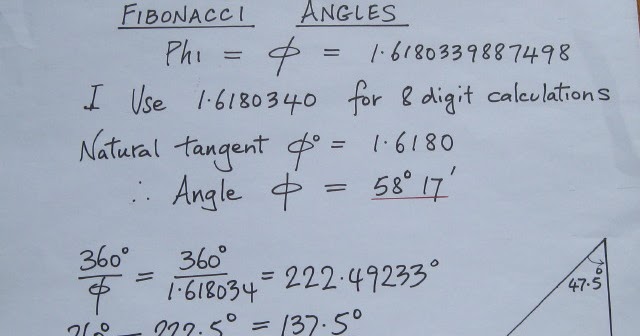 FIBONACCI ANGLES
Phi = ϕ = 1.6180339887498
I Use 1.6180340 for 8 digit calculations
Natural tangent ϕ° = 1.6180
∴ Angle ϕ = 58° 17′
360°/ϕ = 360°/1.618034 = 222.49233°
47.5°
360° - 222.5° = 137.5°